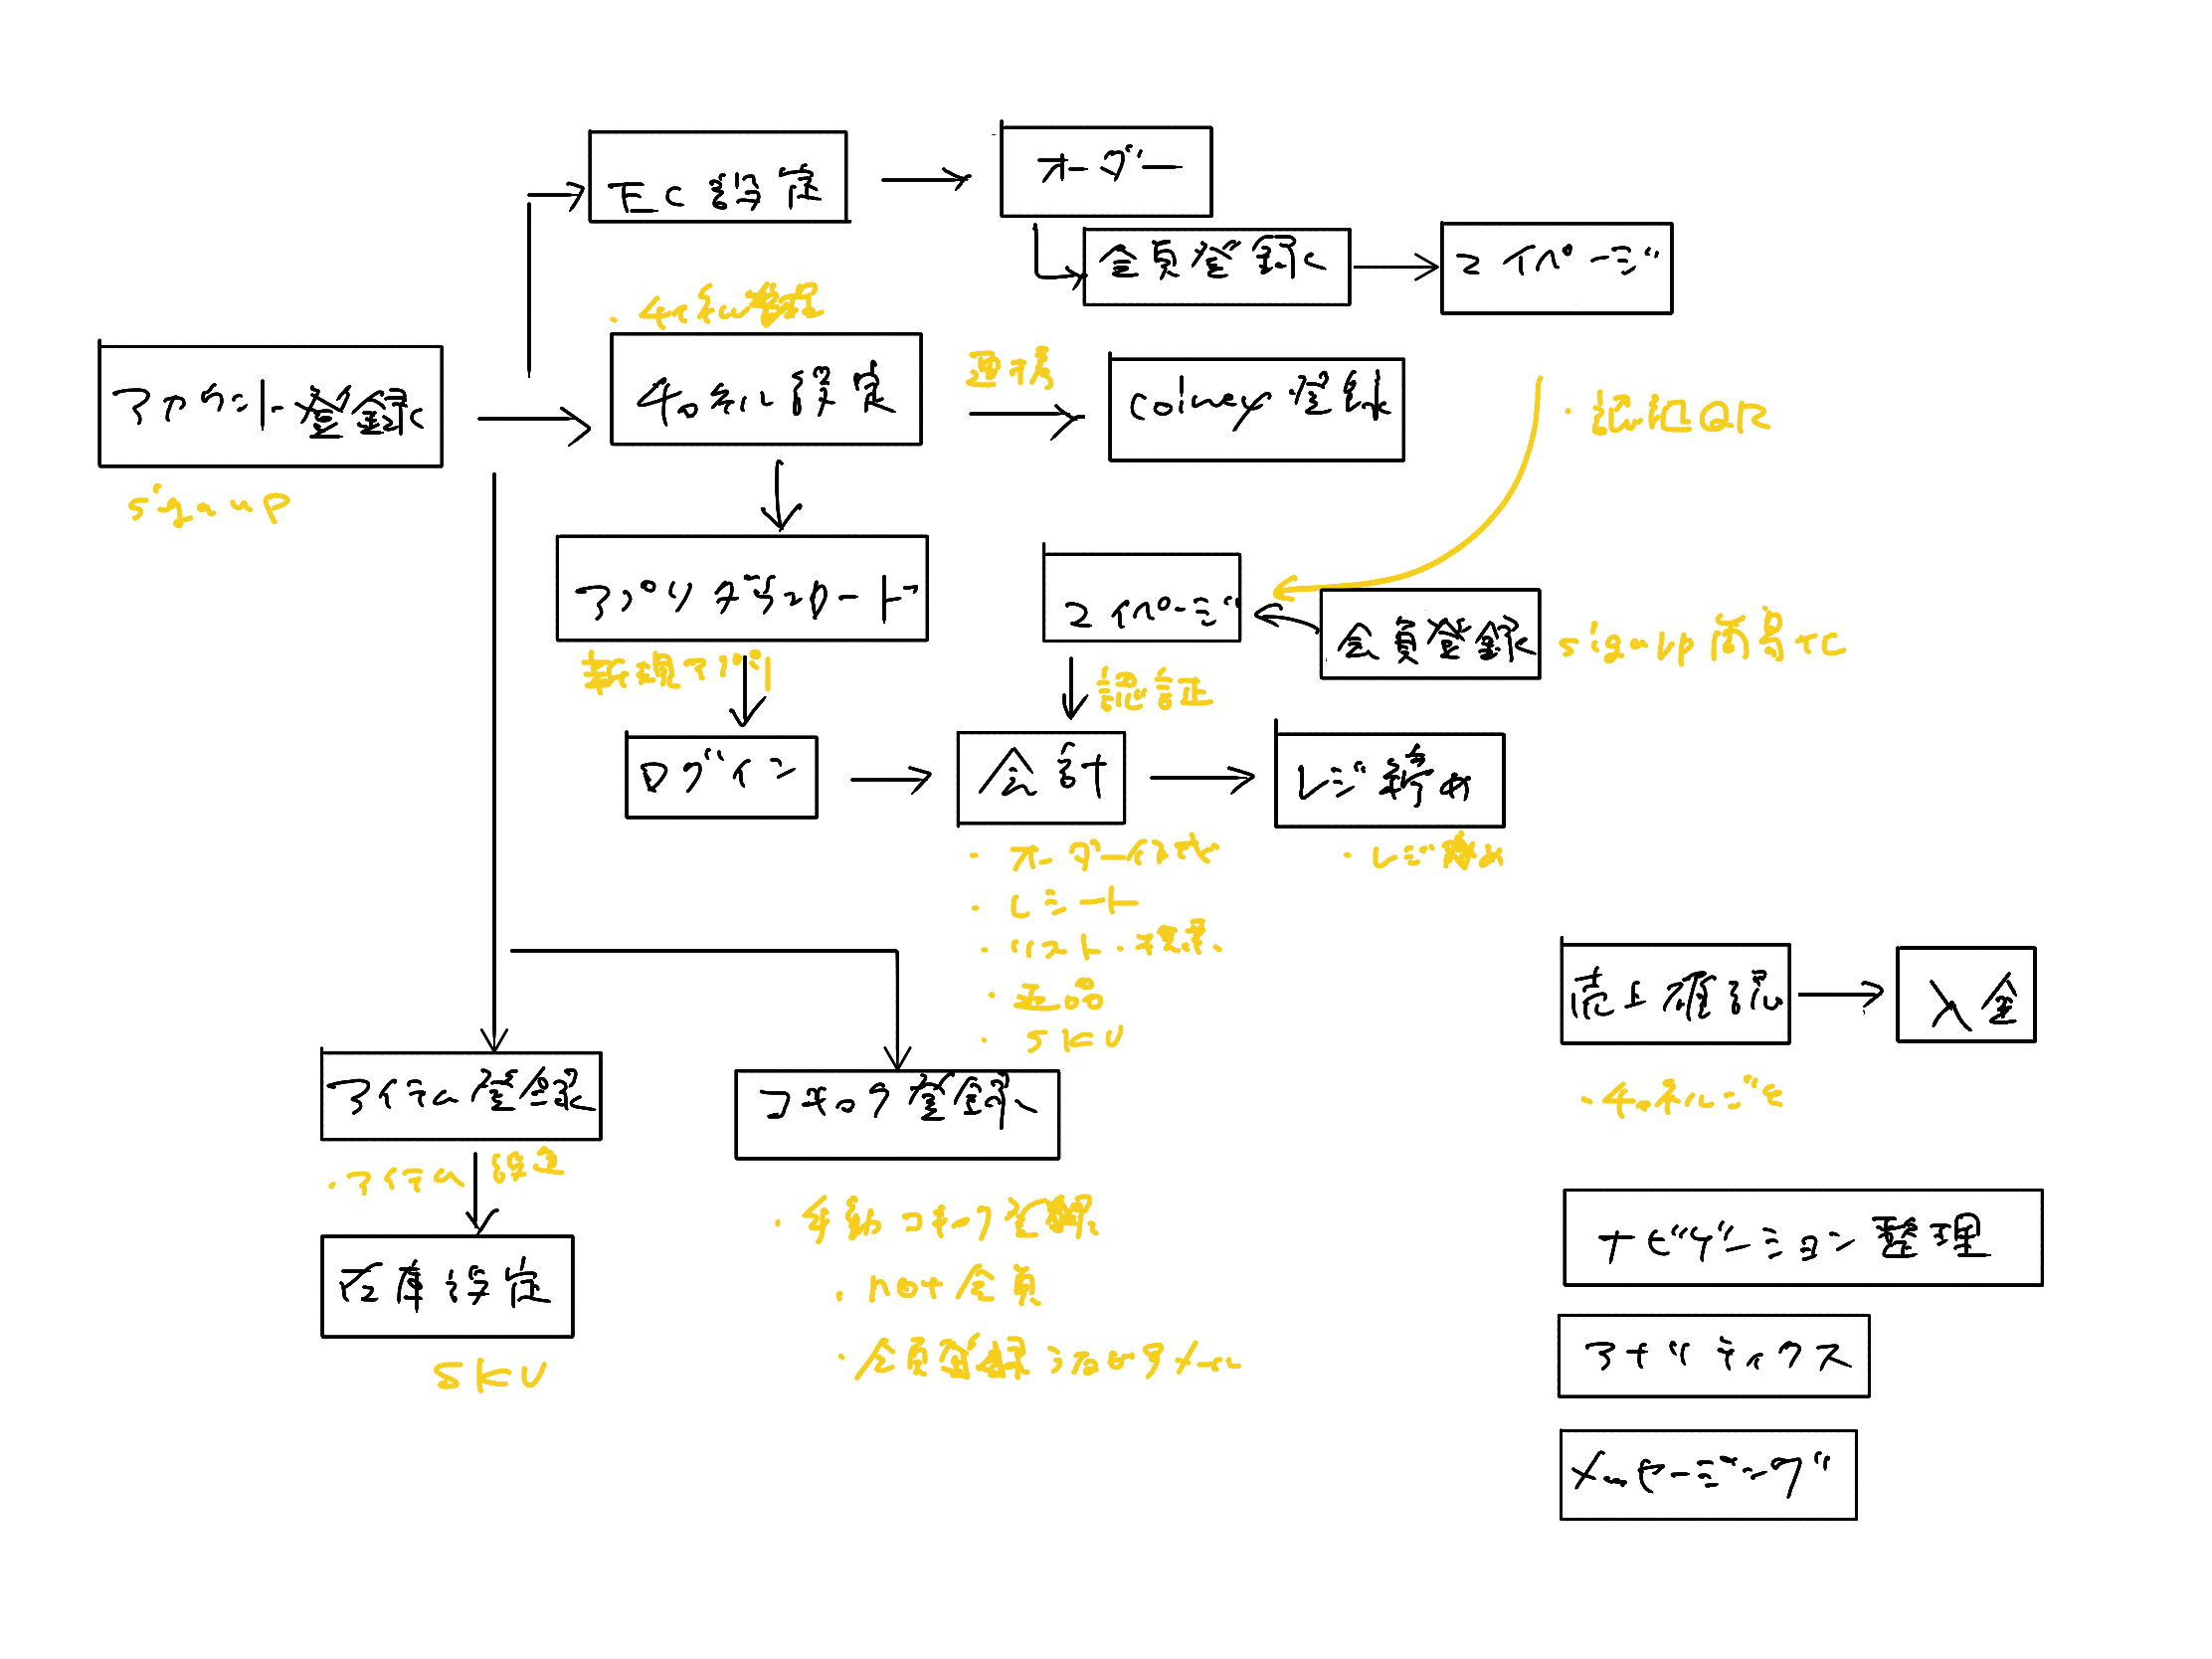 EC設定
オーダー
会員登録
マイページ
・チャネル管理
アカウント登録
signup
チャネル設定
連携
coiney登録
・認証QR
アプリダウンロード
新規アプリ
マイページ
会員登録
signup簡易化
認証
ログイン
会計
レジ締め
・オーダー作成
・レシート
・リスト・検索
・返品
・SKU
・レジ締め
売上確認
入金
・チャネルごと
アイテム登録
・アイテム設定
在庫設定
SKU
コキャク登録
・手動コキャク登録
・not会員
・会員登録うながすメール
ナビゲーション整理
アナリティクス
メッセージング